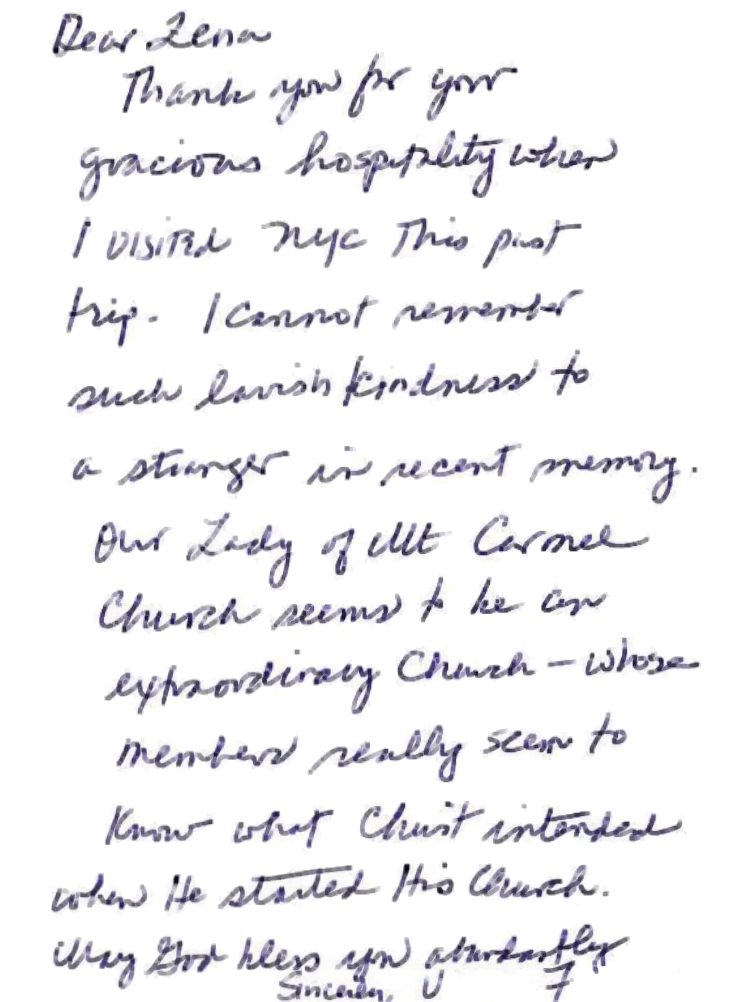 Dear Lena
Thank you for your
gracious hospitality when
I visited NYC This past
trip. I cannot remember
such lavish kindness to
a stranger in recent memory.
Our Lady of Mt Carmel
Church seems to be an
extraordinary Church – whose
members really seem to
Know what Christ intended
when He started His Church.
May God bless you abundantly
Sincerely,